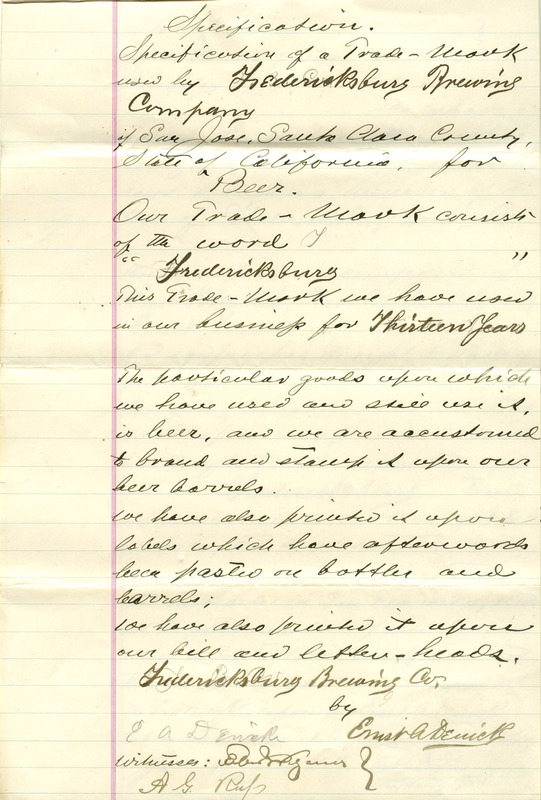 Specification.
Specification of a Trade-Mark
used by Fredericksburg Brewing
Company
of San Jose, Santa Clara County,
State of California, for
Beer.
Our Trade-Mark consists
of the word
" Fredericksburg "
This Trade-Mark we have used
in our business for Thirteen Years
The particular goods upon which
we have used and still use it,
is beer, and we are accustomed
to brand and stamp it upon our
beer barrels.
We have also printed it upon
labels which have afterwards
been pasted on bottles and
barrels;
We have also printed it upon
our bill and letter-heads.
Fredericksburg Brewing Co.
by
E A Denicke Ernst A Denicke
Witnesses:
A G